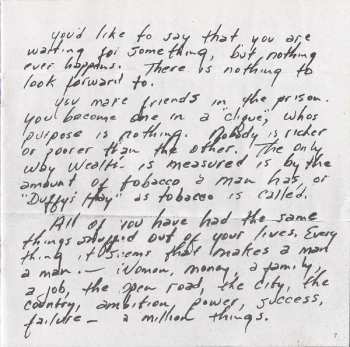 you'd like to say that you are
waiting for something, but nothing
ever happens. There is nothing to
look forward to.
you make friends in the prison.
you become one in a clique, whos
purpose is nothing. Nobody is richer
or poorer than the other. The only
way wealth is measured is by the
amount of tobacco a man has, or
"Duffy's Hay" as tobacco is called.
All of you have had the same
things snapped out of your lives. Every
thing it seems that makes a man
a man. — Woman, money, a family,
a job, the open road, the city, the
country, ambition, power, success,
failure — a million things.